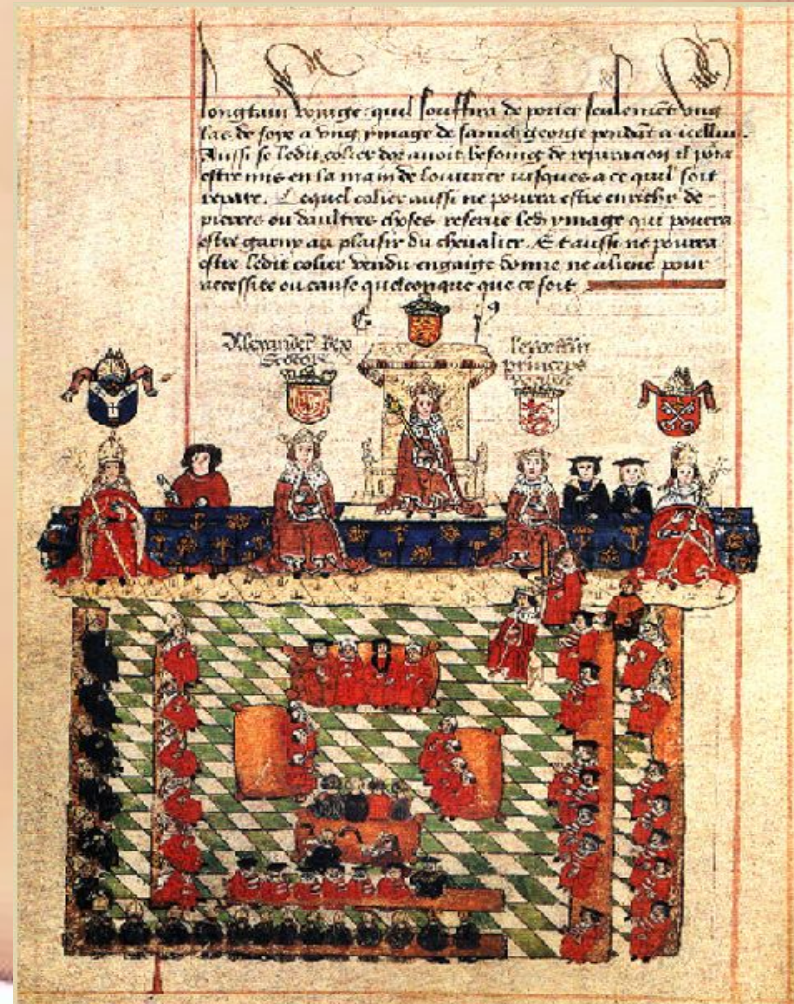 longtain voiage: quil souffira de porter seulement vng
las de soye a vng ymage de sainct george pendāt a icelluy.
Aussi se ledit colier dor auoit besoing de reparacion il pora
estre mis en la main de louurier iusques a ce quil soit
repare. Lequel colier aussi ne pourra estre enrichy de
pierres ou daultres choses reserue led ymage qui pourra
estre garny au plaisir du cheualier. Et aussi ne pourra
estre ledit colier vendu engaige donne ne aliene pour
necessite ou cause quelconque que ce soit
Alexander Rex
Scotorū
princeps